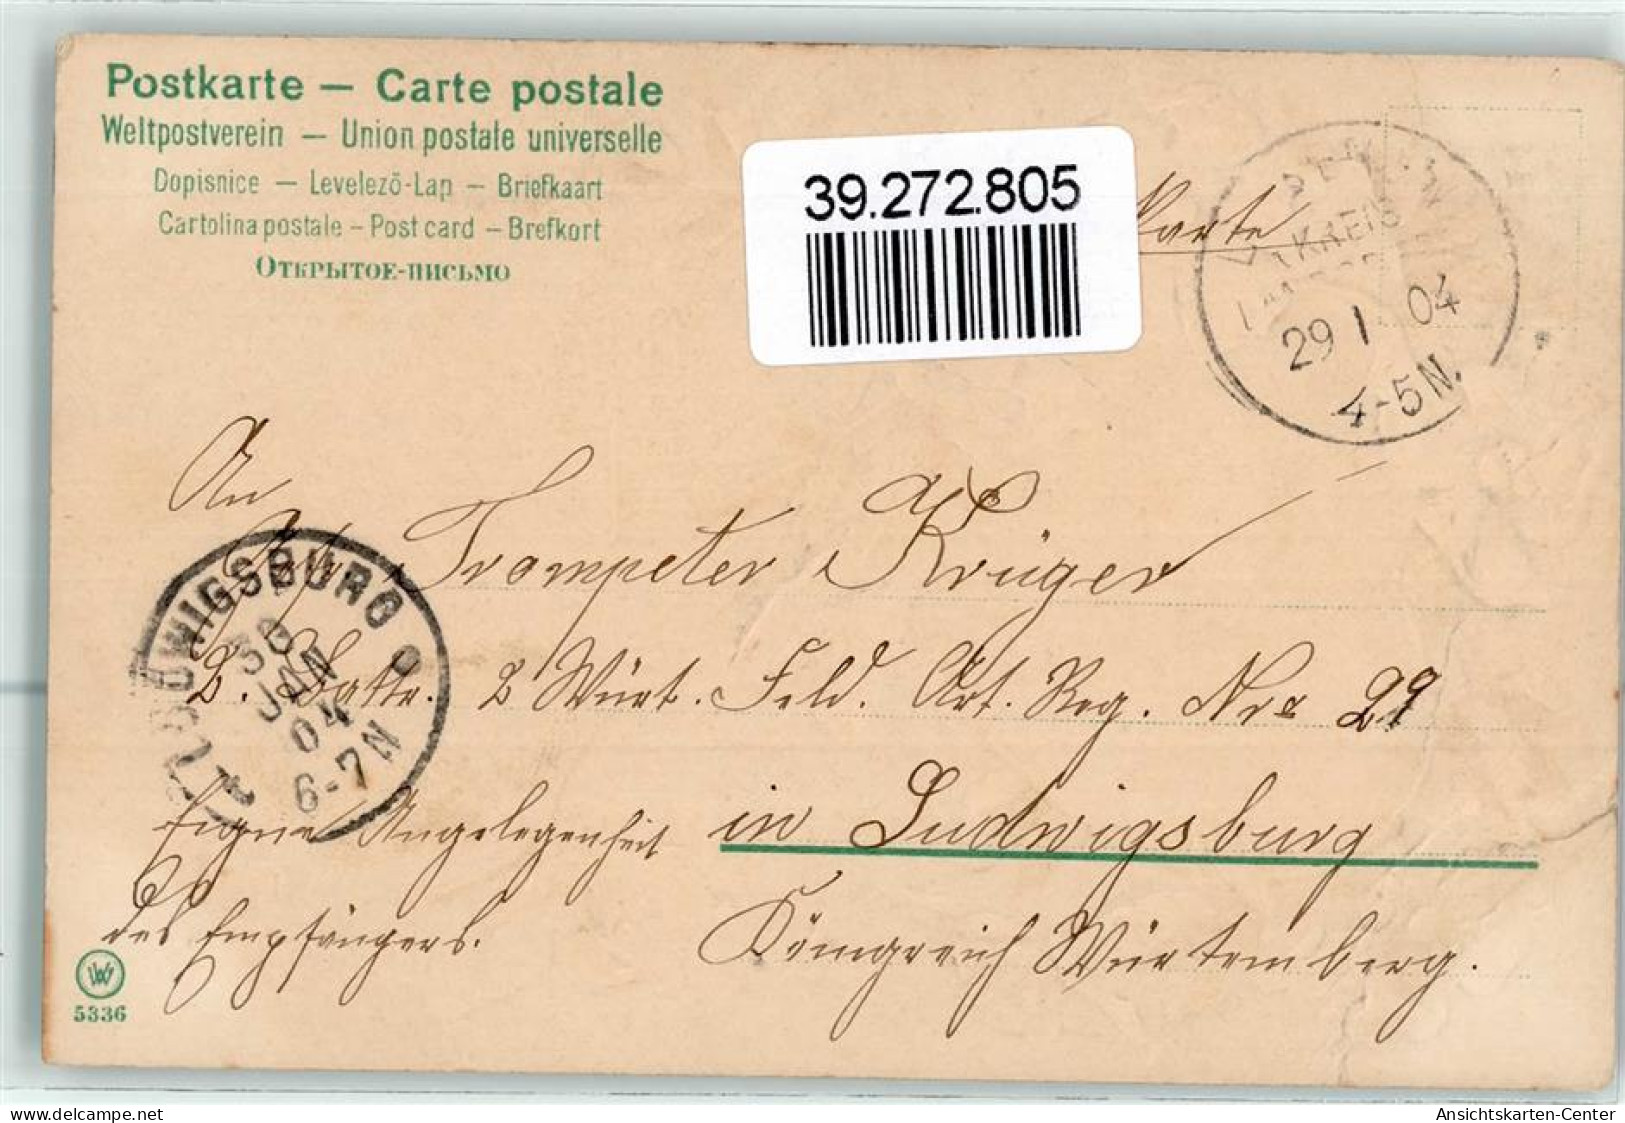 Postkarte — Carte postale
Weltpostverein — Union postale universelle
Dopisnice — Levelező-Lap — Briefkaart
Cartolina postale – Post card – Brefkort
Открытое-письмо
39.272.805
karte
KREIS
29 1 04
4-5N.
An
Trompeter Krüger
2. Battr. 2 Württ. Feld. Art. Reg. Nro 29
in Ludwigsburg
Königreich Württemberg.
LUDWIGSBURG
30
JAN
04
6-7N
1
Eigne Angelegenheit
des Empfängers.
5336
delcampe.net
Ansichtskarten-Center